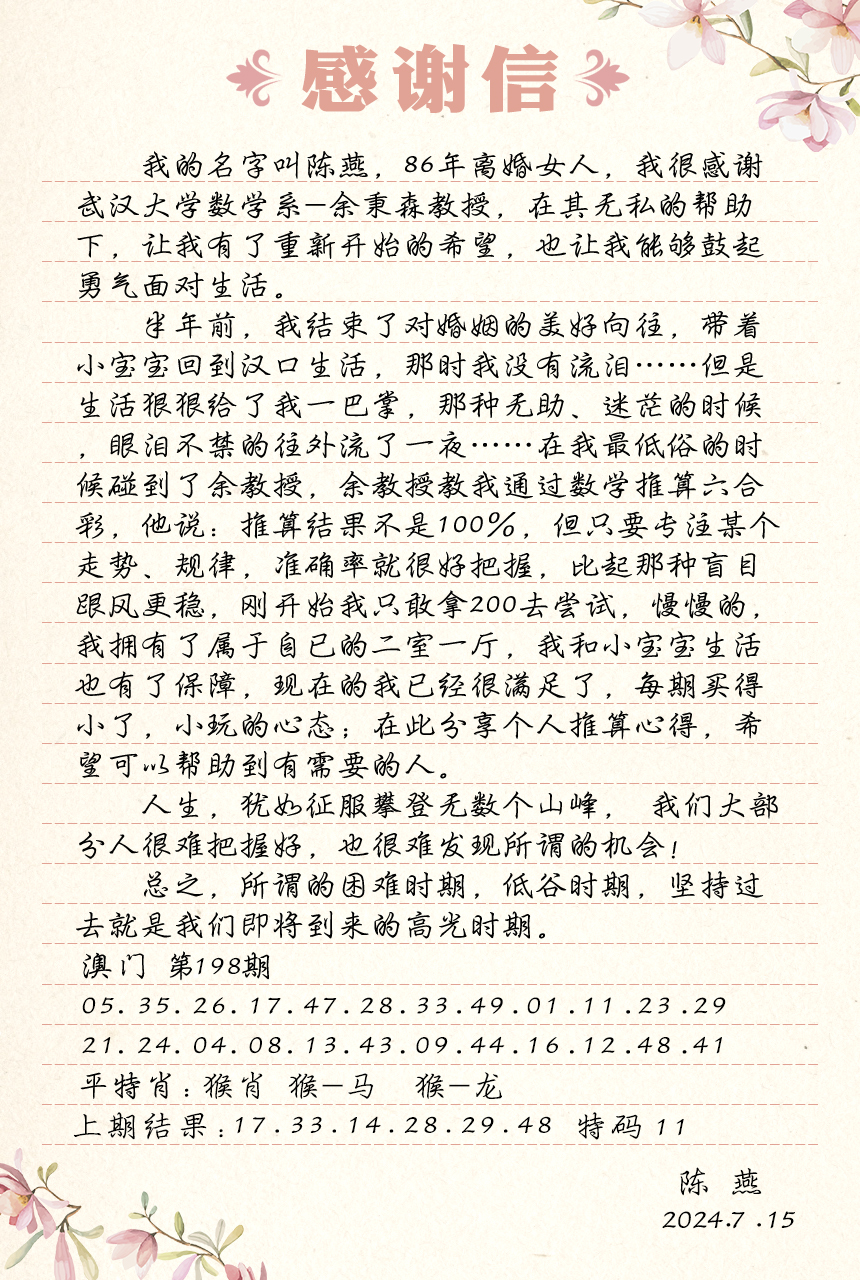 感谢信
我的名字叫陈燕，86年离婚女人，我很感谢
武汉大学数学系—余秉森教授，在其无私的帮助
下，让我有了重新开始的希望，也让我能够鼓起
勇气面对生活。
半年前，我结束了对婚姻的美好向往，带着
小宝宝回到汉口生活，那时我没有流泪……但是
生活狠狠给了我一巴掌，那种无助、迷茫的时候
，眼泪不禁的往外流了一夜……在我最低俗的时
候碰到了余教授，余教授教我通过数学推算六合
彩，他说：推算结果不是100%，但只要专注某个
走势、规律，准确率就很好把握，比起那种盲目
跟风更稳，刚开始我只敢拿200去尝试，慢慢的，
我拥有了属于自已的二室一厅，我和小宝宝生活
也有了保障，现在的我已经很满足了，每期买得
小了，小玩的心态；在此分享个人推算心得，希
望可以帮助到有需要的人。
人生，犹如征服攀登无数个山峰， 我们大部
分人很难把握好，也很难发现所谓的机会！
总之，所谓的困难时期，低谷时期，坚持过
去就是我们即将到来的高光时期。
澳门 第198期
05.35.26.17.47.28.33.49.01.11.23.29
21.24.04.08.13.43.09.44.16.12.48.41
平特肖：猴肖 猴—马 猴—龙
上期结果：17.33.14.28.29.48 特码 11
陈 燕
2024.7.15